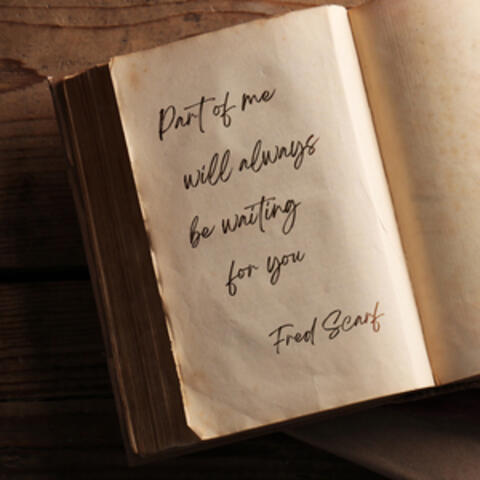 Part of me
will always
be waiting
for you
Fred Scarf